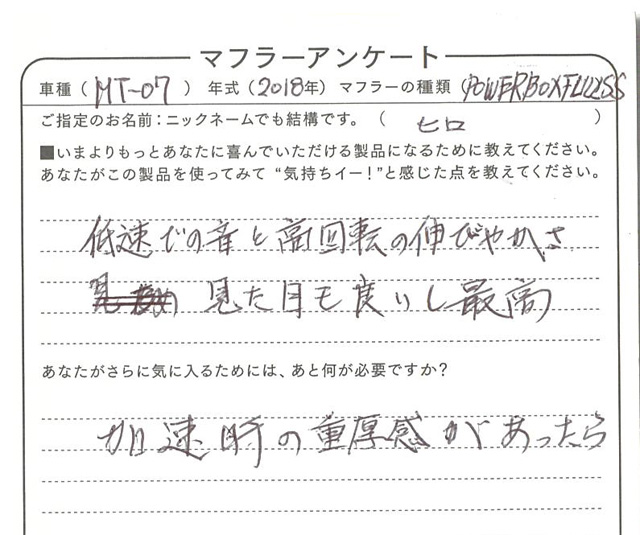 マフラーアンケート
車種(MT-07) 年式(2018年) マフラーの種類(POWERBOXFULLSS
ご指定のお名前:ニックネームでも結構です。( ヒロ )
■いまよりもっとあなたに喜んでいただける製品になるために教えてください。
あなたがこの製品を使ってみて“気持ちイー!”と感じた点を教えてください。
低速での音と高回転の伸びやかさ
見た目も良いし最高
あなたがさらに気に入るためには、あと何が必要ですか?
加速時の重厚感があったら